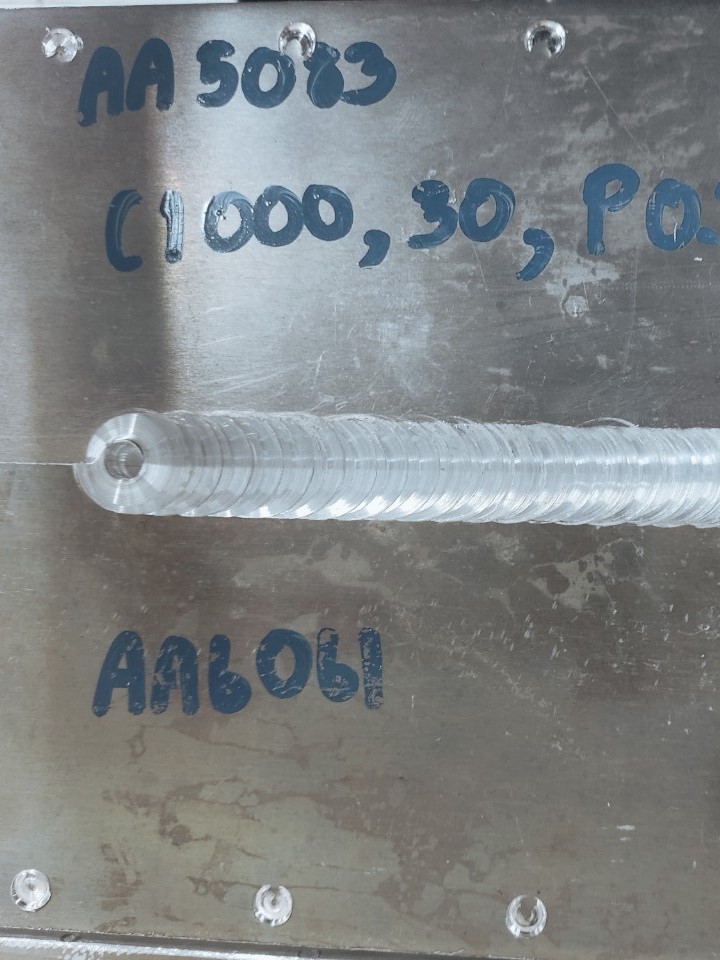 AA 5083
(1000, 30, P0.
AA6061